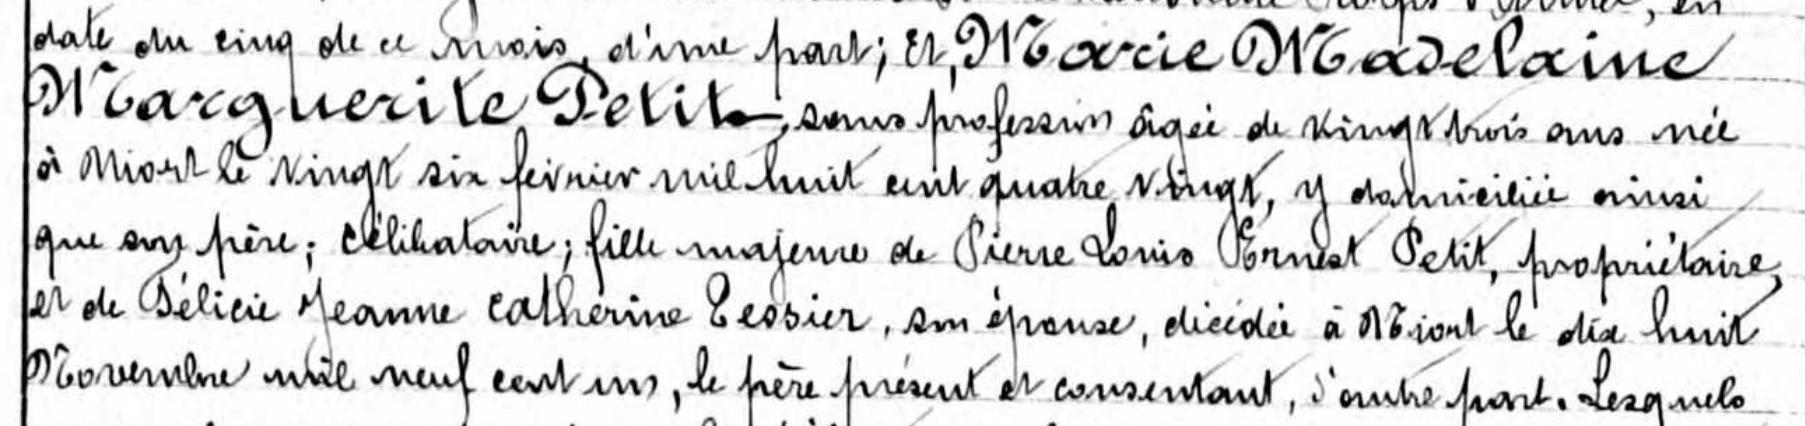 date du cinq de ce mois, d'une part; Et, Marie Madelaine
Marguerite Petit, sans profession âgée de vingt trois ans née
à Niort le vingt six février mil huit cent quatre vingt, y domiciliée ainsi
que son père; célibataire; fille majeure de Pierre Louis Ernest Petit, propriétaire,
et de Félicie Jeanne Catherine Tessier, son épouse, décédée à Niort le dix huit
Novembre mil neuf cent un, le père présent et consentant, d'autre part. Lesquels